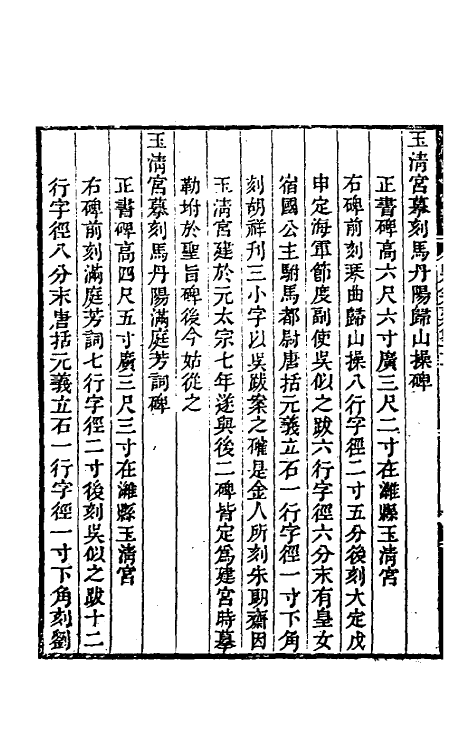 玉清宮摹刻馬丹陽歸山操碑
正書碑高六尺六寸廣三尺二寸在濰縣玉清宮
右碑前刻琴曲歸山操八行字徑二寸五分後刻大定戊
申定海軍節度副使吳似之跋六行字徑六分末有皇女
宿國公主駙馬都尉唐括元義立石一行字徑一寸下角
刻胡祥刊三小字以吳跋案之確是金人所刻朱朗齋因
玉清宮建於元太宗七年遂與後二碑皆定爲建宮時摹
勒坿於聖旨碑後今姑從之
玉清宮摹刻馬丹陽滿庭芳詞碑
正書碑高四尺五寸廣三尺三寸在濰縣玉清宮
右碑前刻滿庭芳詞七行字徑二寸後刻吳似之跋十二
行字徑八分末唐括元義立石一行字徑一寸下角刻劉